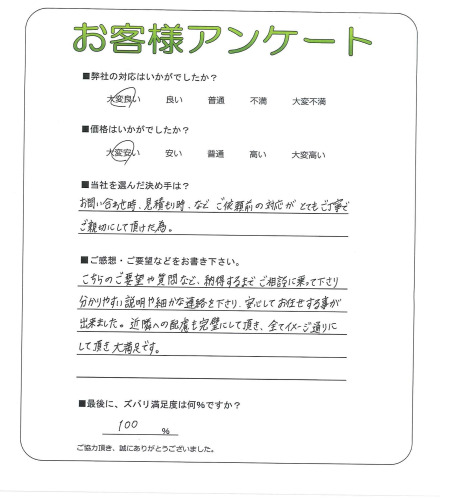 お客様アンケート
■弊社の対応はいかがでしたか？
大変良い 良い 普通 不満 大変不満
■価格はいかがでしたか？
大変安い 安い 普通 高い 大変高い
■当社を選んだ決め手は？
お問い合わせ時、見積もり時、など ご依頼前の対応が とてもご丁寧で
ご親切にして頂けた為。
■ご感想・ご要望などをお書き下さい。
こちらのご要望や質問など、納得するまで ご相談に乗って下さり
分かりやすい説明や細かな連絡を下さり、安心してお任せする事が
出来ました。近隣への配慮も完璧にして頂き、全てイメージ通りに
して頂き大満足です。
■最後に、ズバリ満足度は何％ですか？
100 ％
ご協力頂き、誠にありがとうございました。